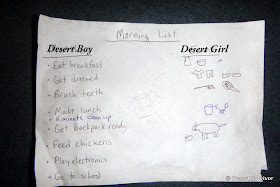 Morning List
Desert Boy Desert Girl
• Eat breakfast
• Get dressed
• Brush teeth
• Make lunch
• 5 minute clean up
• Get backpack ready
• Feed chickens
• Play electronics
• Go to school